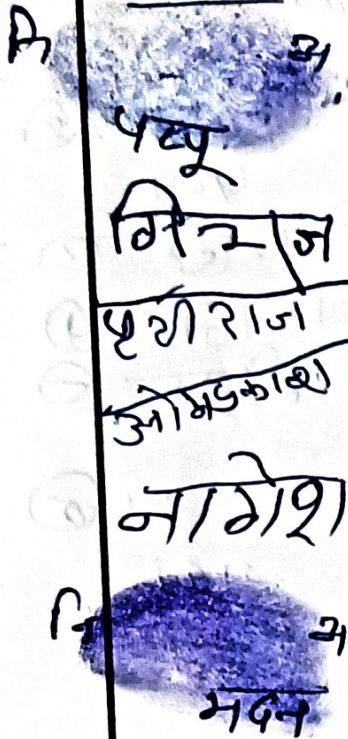 नि अ
पप्पू
गिर्राज
पृथ्वीराज
ओमप्रकाश
नागेश
नि अ
मदन